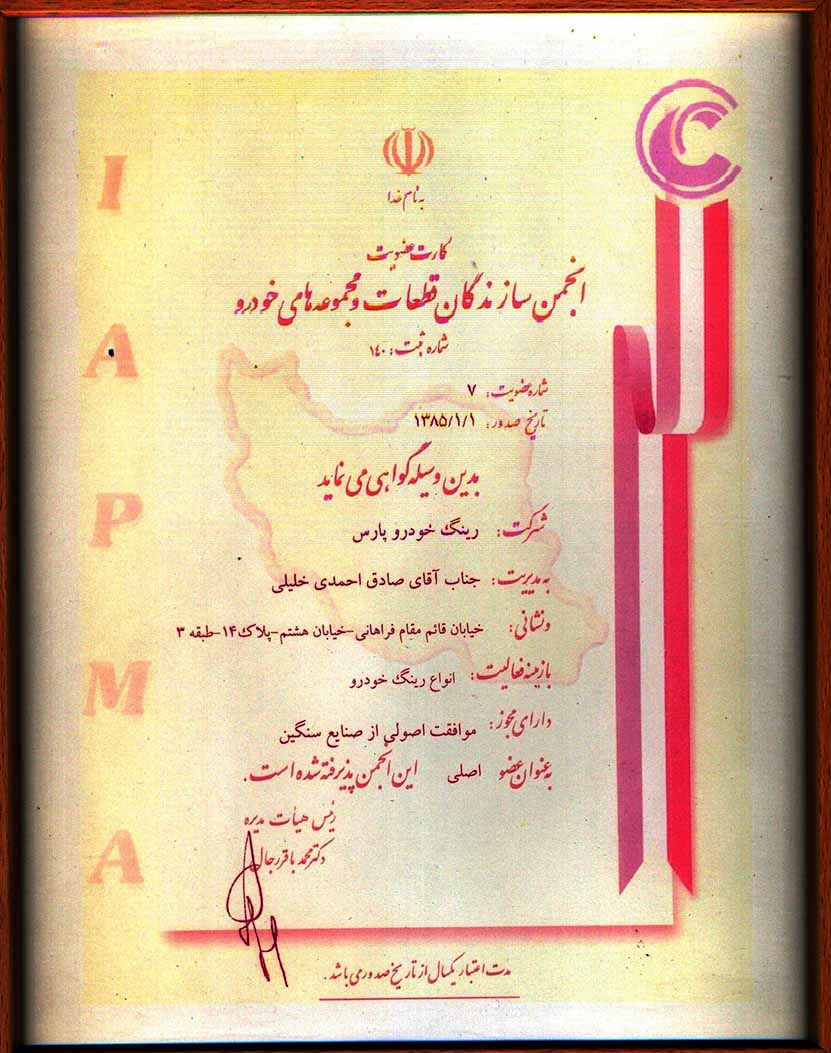 به نام خدا
کارت عضویت
انجمن سازندگان قطعات و مجموعه های خودرو
شماره ثبت: ۱۴۰
شماره عضویت: ۷
تاریخ صدور: ۱۳۸۵/۱/۱
بدین وسیله گواهی می نماید
شرکت: رینگ خودرو پارس
به مدیریت: جناب آقای صادق احمدی خلیلی
و نشانی: خیابان قائم مقام فراهانی-خیابان هشتم-پلاک۱۴-طبقه ۳
با زمینه فعالیت: انواع رینگ خودرو
دارای مجوز: موافقت اصولی از صنایع سنگین
به عنوان عضو اصلی این انجمن پذیرفته شده است.
رئیس هیأت مدیره
دکتر محمد باقر رجال
مدت اعتبار یکسال از تاریخ صدور می باشد.
I
A
P
M
A